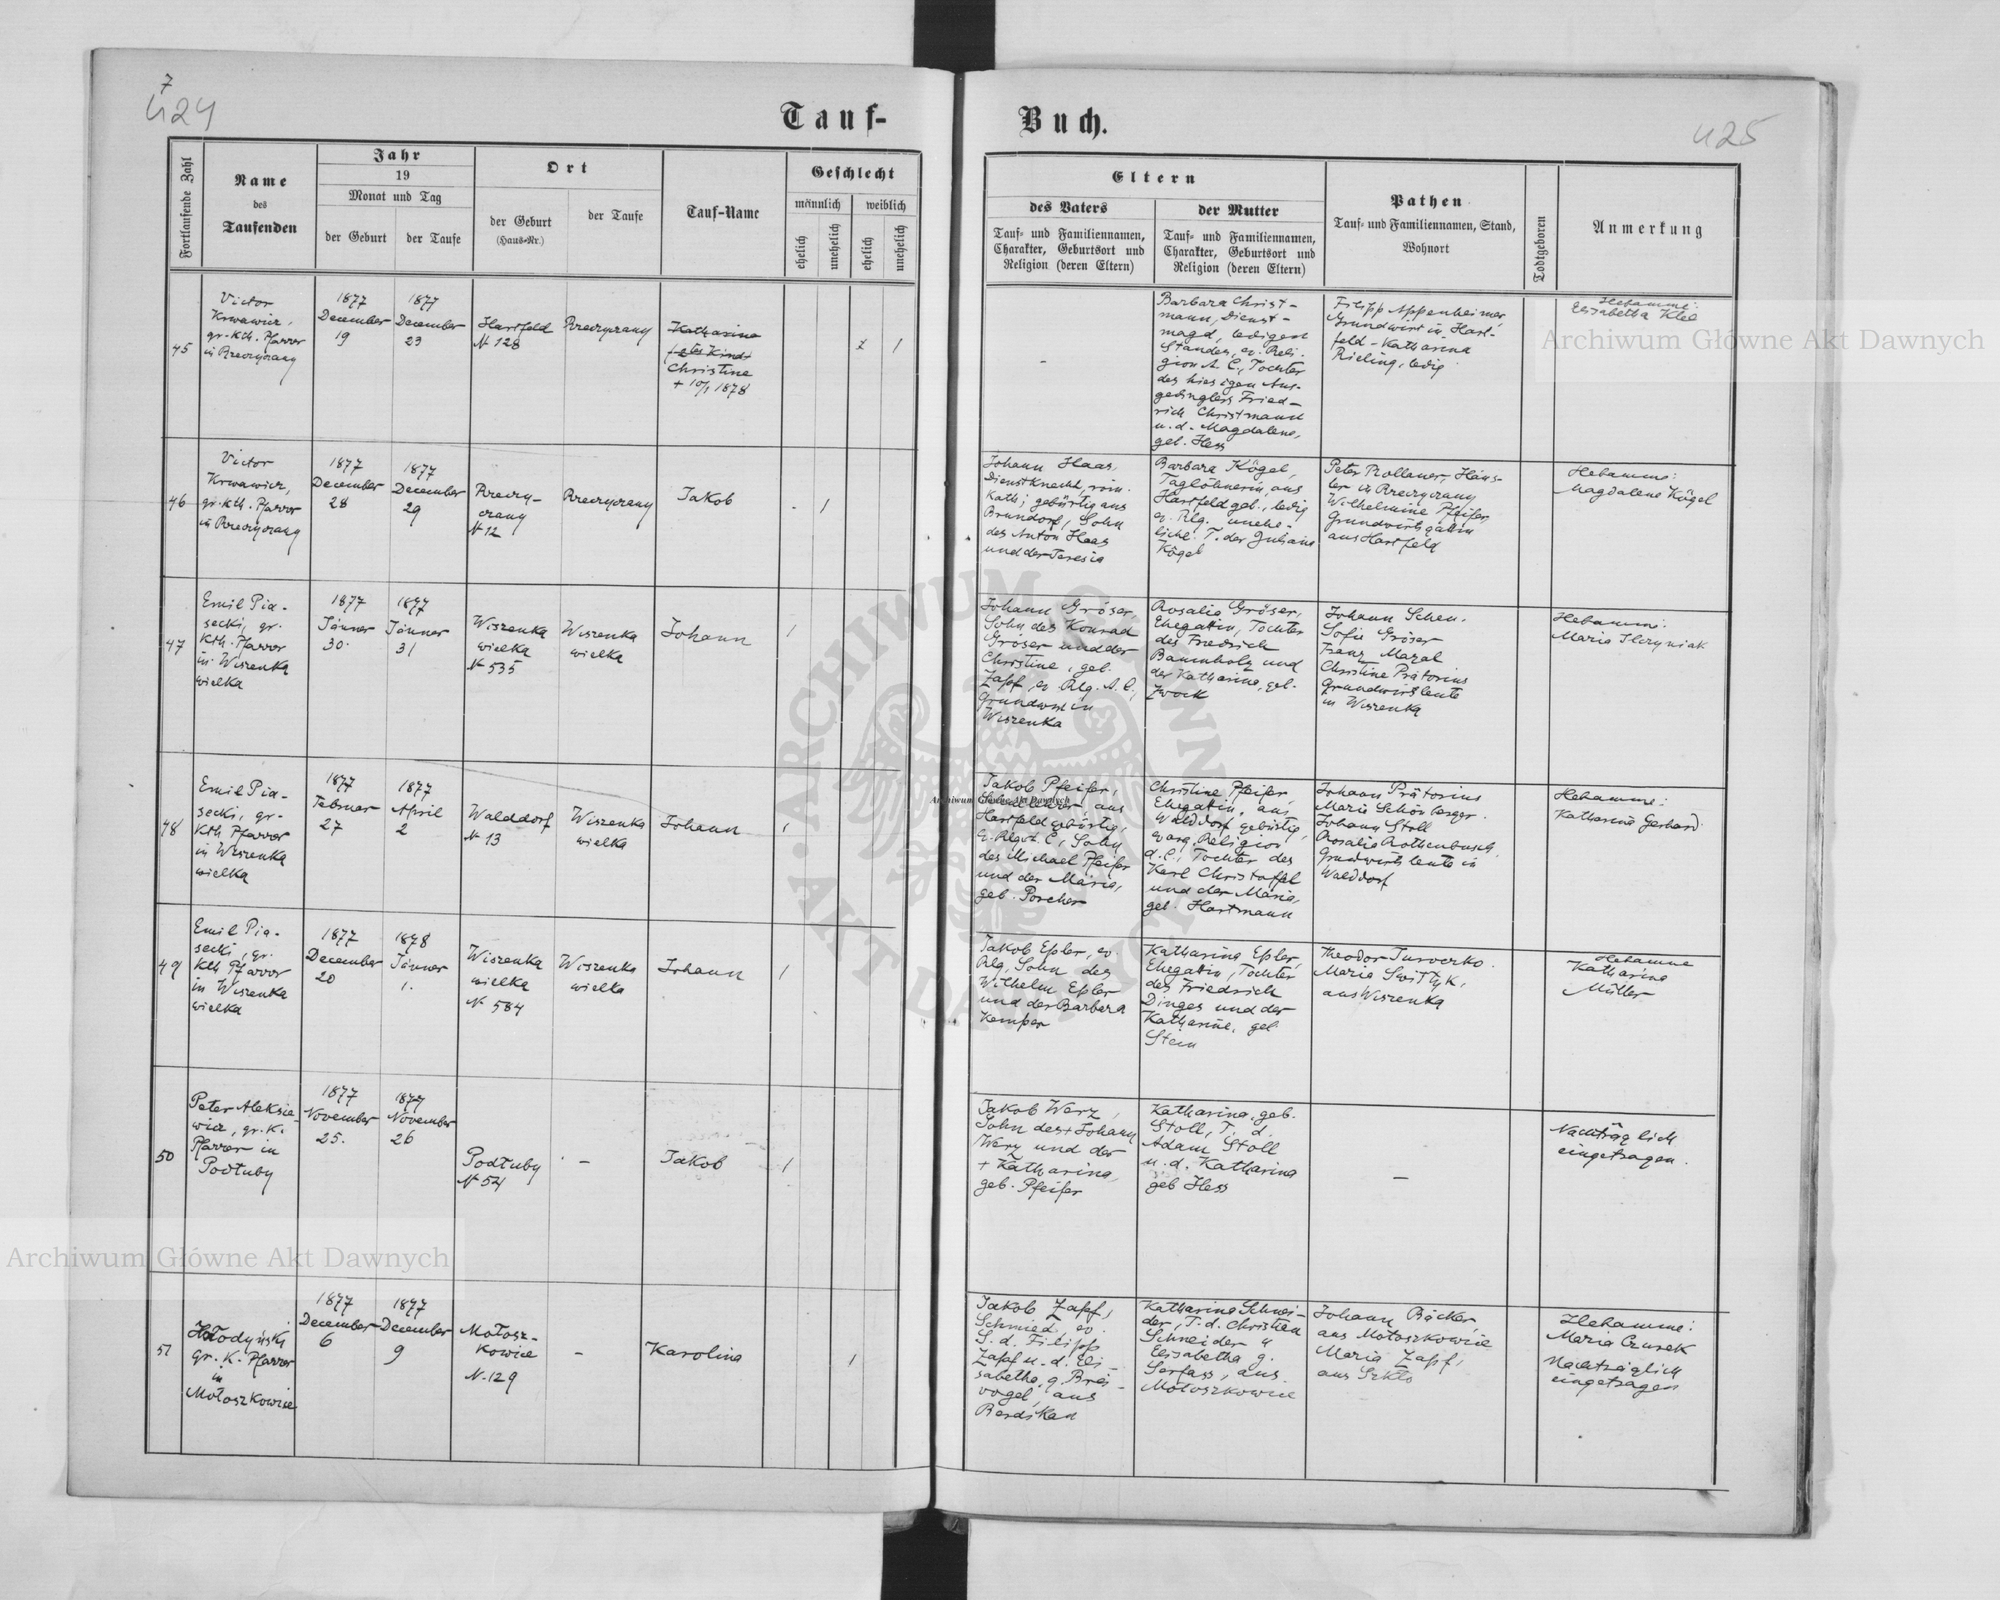 7
424
425
Tauf-
Buch.
Fortlaufende Zahl
Name
des
Taufenden
Jahr
19
Monat und Tag
der Geburt
der Taufe
Ort
der Geburt
(Haus-Nr.)
der Taufe
Tauf-Name
Geschlecht
männlich
weiblich
ehelich
unehelich
ehelich
unehelich
Eltern
des Vaters
Tauf- und Familiennamen,
Charakter, Geburtsort und
Religion (deren Eltern)
der Mutter
Tauf- und Familiennamen,
Charakter, Geburtsort und
Religion (deren Eltern)
Pathen
Tauf- und Familiennamen, Stand,
Wohnort
Todtgeboren
Anmerkung
45
Victor
Krwawicz,
gr.-Kth. Pfarrer
in
1877
December
19
1877
December
23
Hartfeld
N 128
Katharina
Christine
+ 10/1 1878
1
-
Barbara Christ-
mann, Dienst-
magd, ledigen
Standes, ev. Reli-
gion A. C., Tochter
des hiesigen Aus-
gedinglers Fried-
rich Christmann
u. d. Magdalena,
geb. Hess
Filipp Appenheimer
Grundwirt in Hart-
feld - Katharina
Rieling, ledig
Hebamme:
Elisabetha Klee
46
Victor
Krwawicz,
gr. Kth. Pfarrer
in
1877
December
28
1877
December
29
N 12
Jakob
-
1
Johann Haas,
Dienstknecht, röm.
Kath; gebürtig aus
Brundorf, Sohn
des Anton Haas
und der Teresia
Barbara Kögel,
Taglöhnerin, aus
Hartfeld geb., ledig
ev. Rlg. unehe-
liche T. der Juliana
Kögel
Peter Prollauer, Häus-
ler in
Wilhelmine Pfeifer,
Grundwirtsgattin
aus Hartfeld
Hebamme:
Magdalena Kögel
47
Emil Pia-
secki, gr.
Kth. Pfarrer
in Wiszenka
wielka
1877
Jänner
30.
1877
Jänner
31
Wiszenka
wielka
N 535
Wiszenka
wielka
Johann
1
Johann Gröser,
Sohn des Konrad
Gröser und der
Christine, geb.
Zapf, ev. Rlg. A. C.,
Grundwirt in
Wiszenka
Rosalia Gröser,
Ehegattin, Tochter
des Friedrich
Baumholz und
der Katharina, geb.
Zwock
Johann Schen.
Sofie Gröser
Franz Mazal
Christine Prätorius
Grundwirtsleute
in Wiszenka
Hebamme:
Maria Ilczyniak
48
Emil Pia-
secki, gr-
Kth Pfarrer
in Wiszenka
wielka
1877
Februar
27
1877
April
2
Walddorf
N 13
Wiszenka
wielka
Johann
1
Jakob Pfeifer,
aus
Hartfeld gebürtig,
ev. Rlg. A. C., Sohn
des Michael Pfeifer
und der Maria,
geb. Porcher
Christine Pfeifer
Ehegattin, aus
Walddorf gebürtig,
evang. Religion
A. C., Tochter des
Karl Christoffel
und der Maria,
geb. Hartmann
Johann Prätorius
Maria Schönberger.
Johann Stoll
Rosalia Rothenbusch,
Grundwirtsleute in
Walddorf
Hebamme:
Katharina Gerhard.
49
Emil Pia-
secki, gr.
Kth Pfarrer
in Wiszenka
wielka
1877
December
20
1878
Jänner
1.
Wiszenka
wielka
N 584
Wiszenka
wielka
Johann
1
Jakob Epler, ev.
Rlg, Sohn des
Wilhelm Epler
und der Barbara
Kemper
Katharina Epler,
Ehegattin, Tochter
des Friedrich
Dinges und der
Katharina, geb.
Stein
Theodor Turverko.
Maria Switłyk,
aus Wiszenka
Hebamme
Katharina
Müller
50
Peter Aleksie-
wicz, gr. K.
Pfarrer in
Podłuby
1877
November
25.
1877
November
26
Podłuby
N 54
-
Jakob
1
Jakob Werz,
Sohn des + Johann
Werz und der
+ Katharina,
geb. Pfeifer
Katharina, geb.
Stoll, T. d.
Adam Stoll
u. d. Katharina
geb Hess
-
Nachträglich
eingetragen.
51
Hołodyński
gr. K. Pfarrer
in
Mołoszkowice
1877
December
6
1877
December
9
Mołosz-
kowice
N. 129
-
Karolina
1
Jakob Zapf,
Schmied, ev.
S. d. Filipp
Zapf u. d. Eli-
sabetha, g. Brei-
vogel, aus
Berdikau
Katharina Schnei-
der, T. d. Christian
Schneider u
Elisabetha g.
Serfass, aus
Mołoszkowice
Johann Bäcker,
aus Mołoszkowice
Maria Zapf,
aus Szkło
Hebamme:
Maria Czurek
Nachträglich
eingetragen
Archiwum Główne Akt Dawnych
Archiwum Główne Akt Dawnych
Archiwum Główne Akt Dawnych